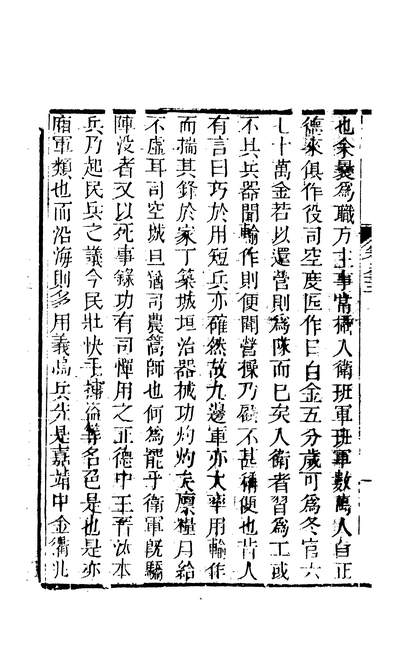 也余曩爲職方主事嘗稽入衛班軍班軍數萬人自正
德來俱作役司空度匠作日白金五分歲可爲冬官六
七十萬金若以還營則爲隊而已矣入衛者習爲工或
不具兵器聞輸作則便聞營操乃蹙不甚稱便也昔人
有言曰巧於用短兵亦確然故九邊軍亦大率用輸作
而揣其鋒於家丁築城垣治器械功灼灼矣廩糧月給
不虛耳司空城旦猶司農篙師也何爲罷乎衛軍旣驕
陣没者又以死事錄功有司憚用之正德中王晉汾本
兵乃起民兵之議今民壯快手捕盜等名色是也是亦
廂軍類也而沿海則多用義嶋兵先是嘉靖中金衢北